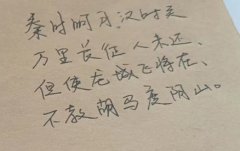 秦时明月汉时关
万里长征人未还、
但使龙城飞将在、
不教胡马度阴山。